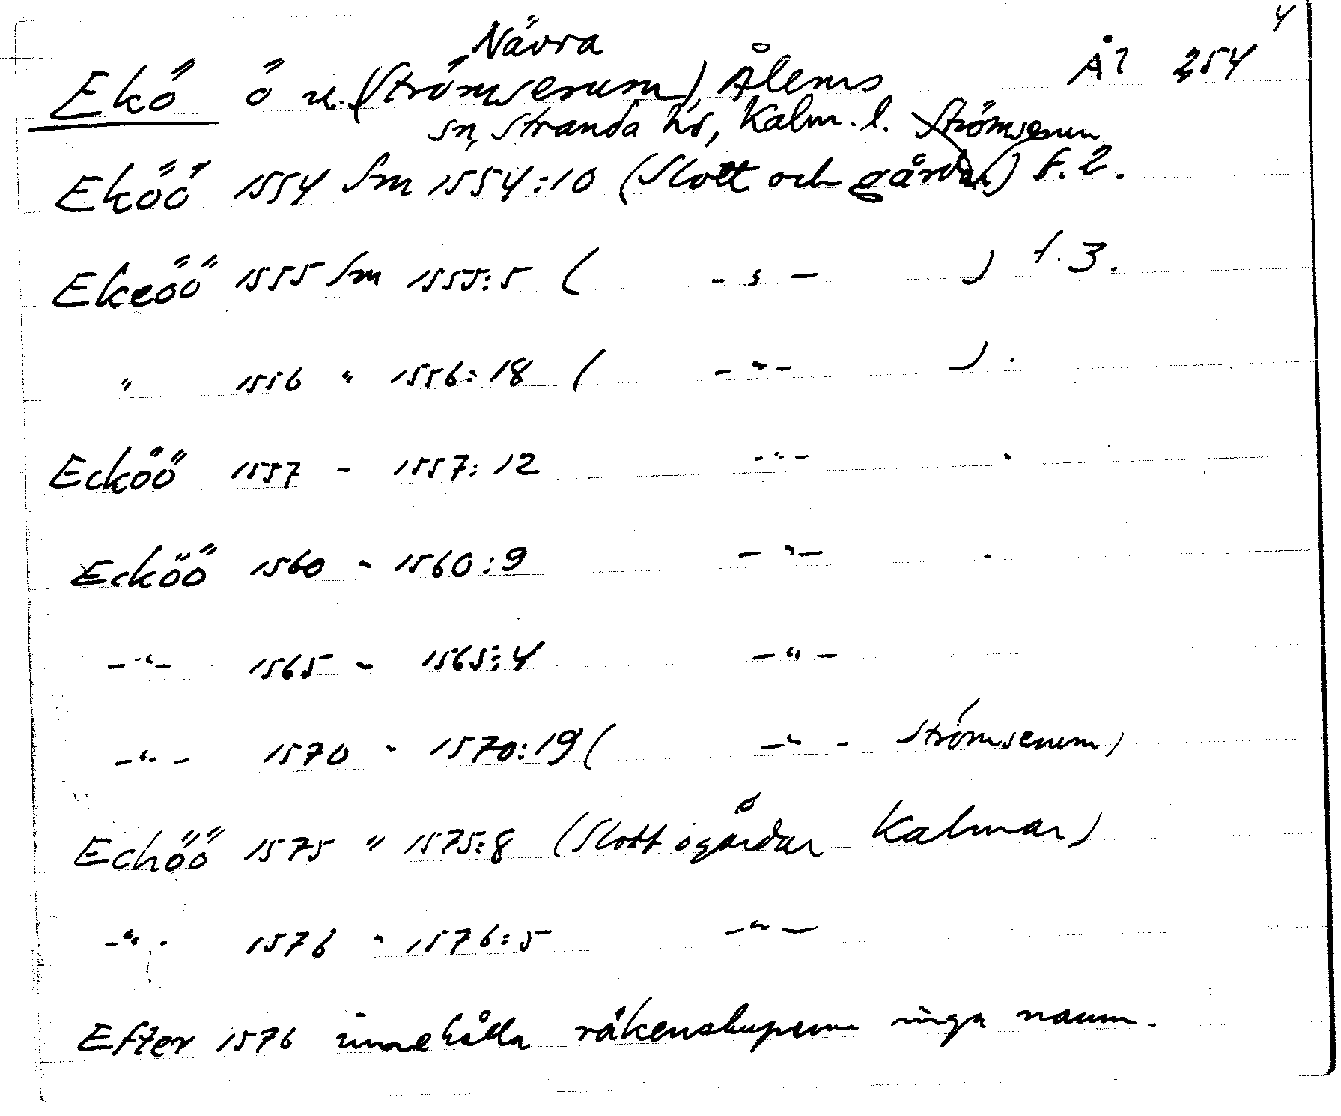 4
Nävra
Ekö ö u. (Strömserum), Ålems Ål 254
sn, Stranda hd, Kalm. l. Strömserum
Eköö 1554 Sm 1554:10 (Slott och gårdar) f. 2.
Ekeöö 1555 Sm 1555:5 ( - " - ) f. 3.
" 1556 " 1556:18 ( - " - ) .
Ecköö 1557 - 1557:12 - " - .
Ecköö 1560 - 1560:9 - " - .
- " - 1565 - 1565:4 - " -
- " - 1570 - 1570:19 ( - " - Strömserum)
Echöö 1575 " 1575:8 (Slott o gårdar Kalmar)
- " - 1576 - 1576:5 - " -
Efter 1576 innehålla räkenskaperna inga namn.